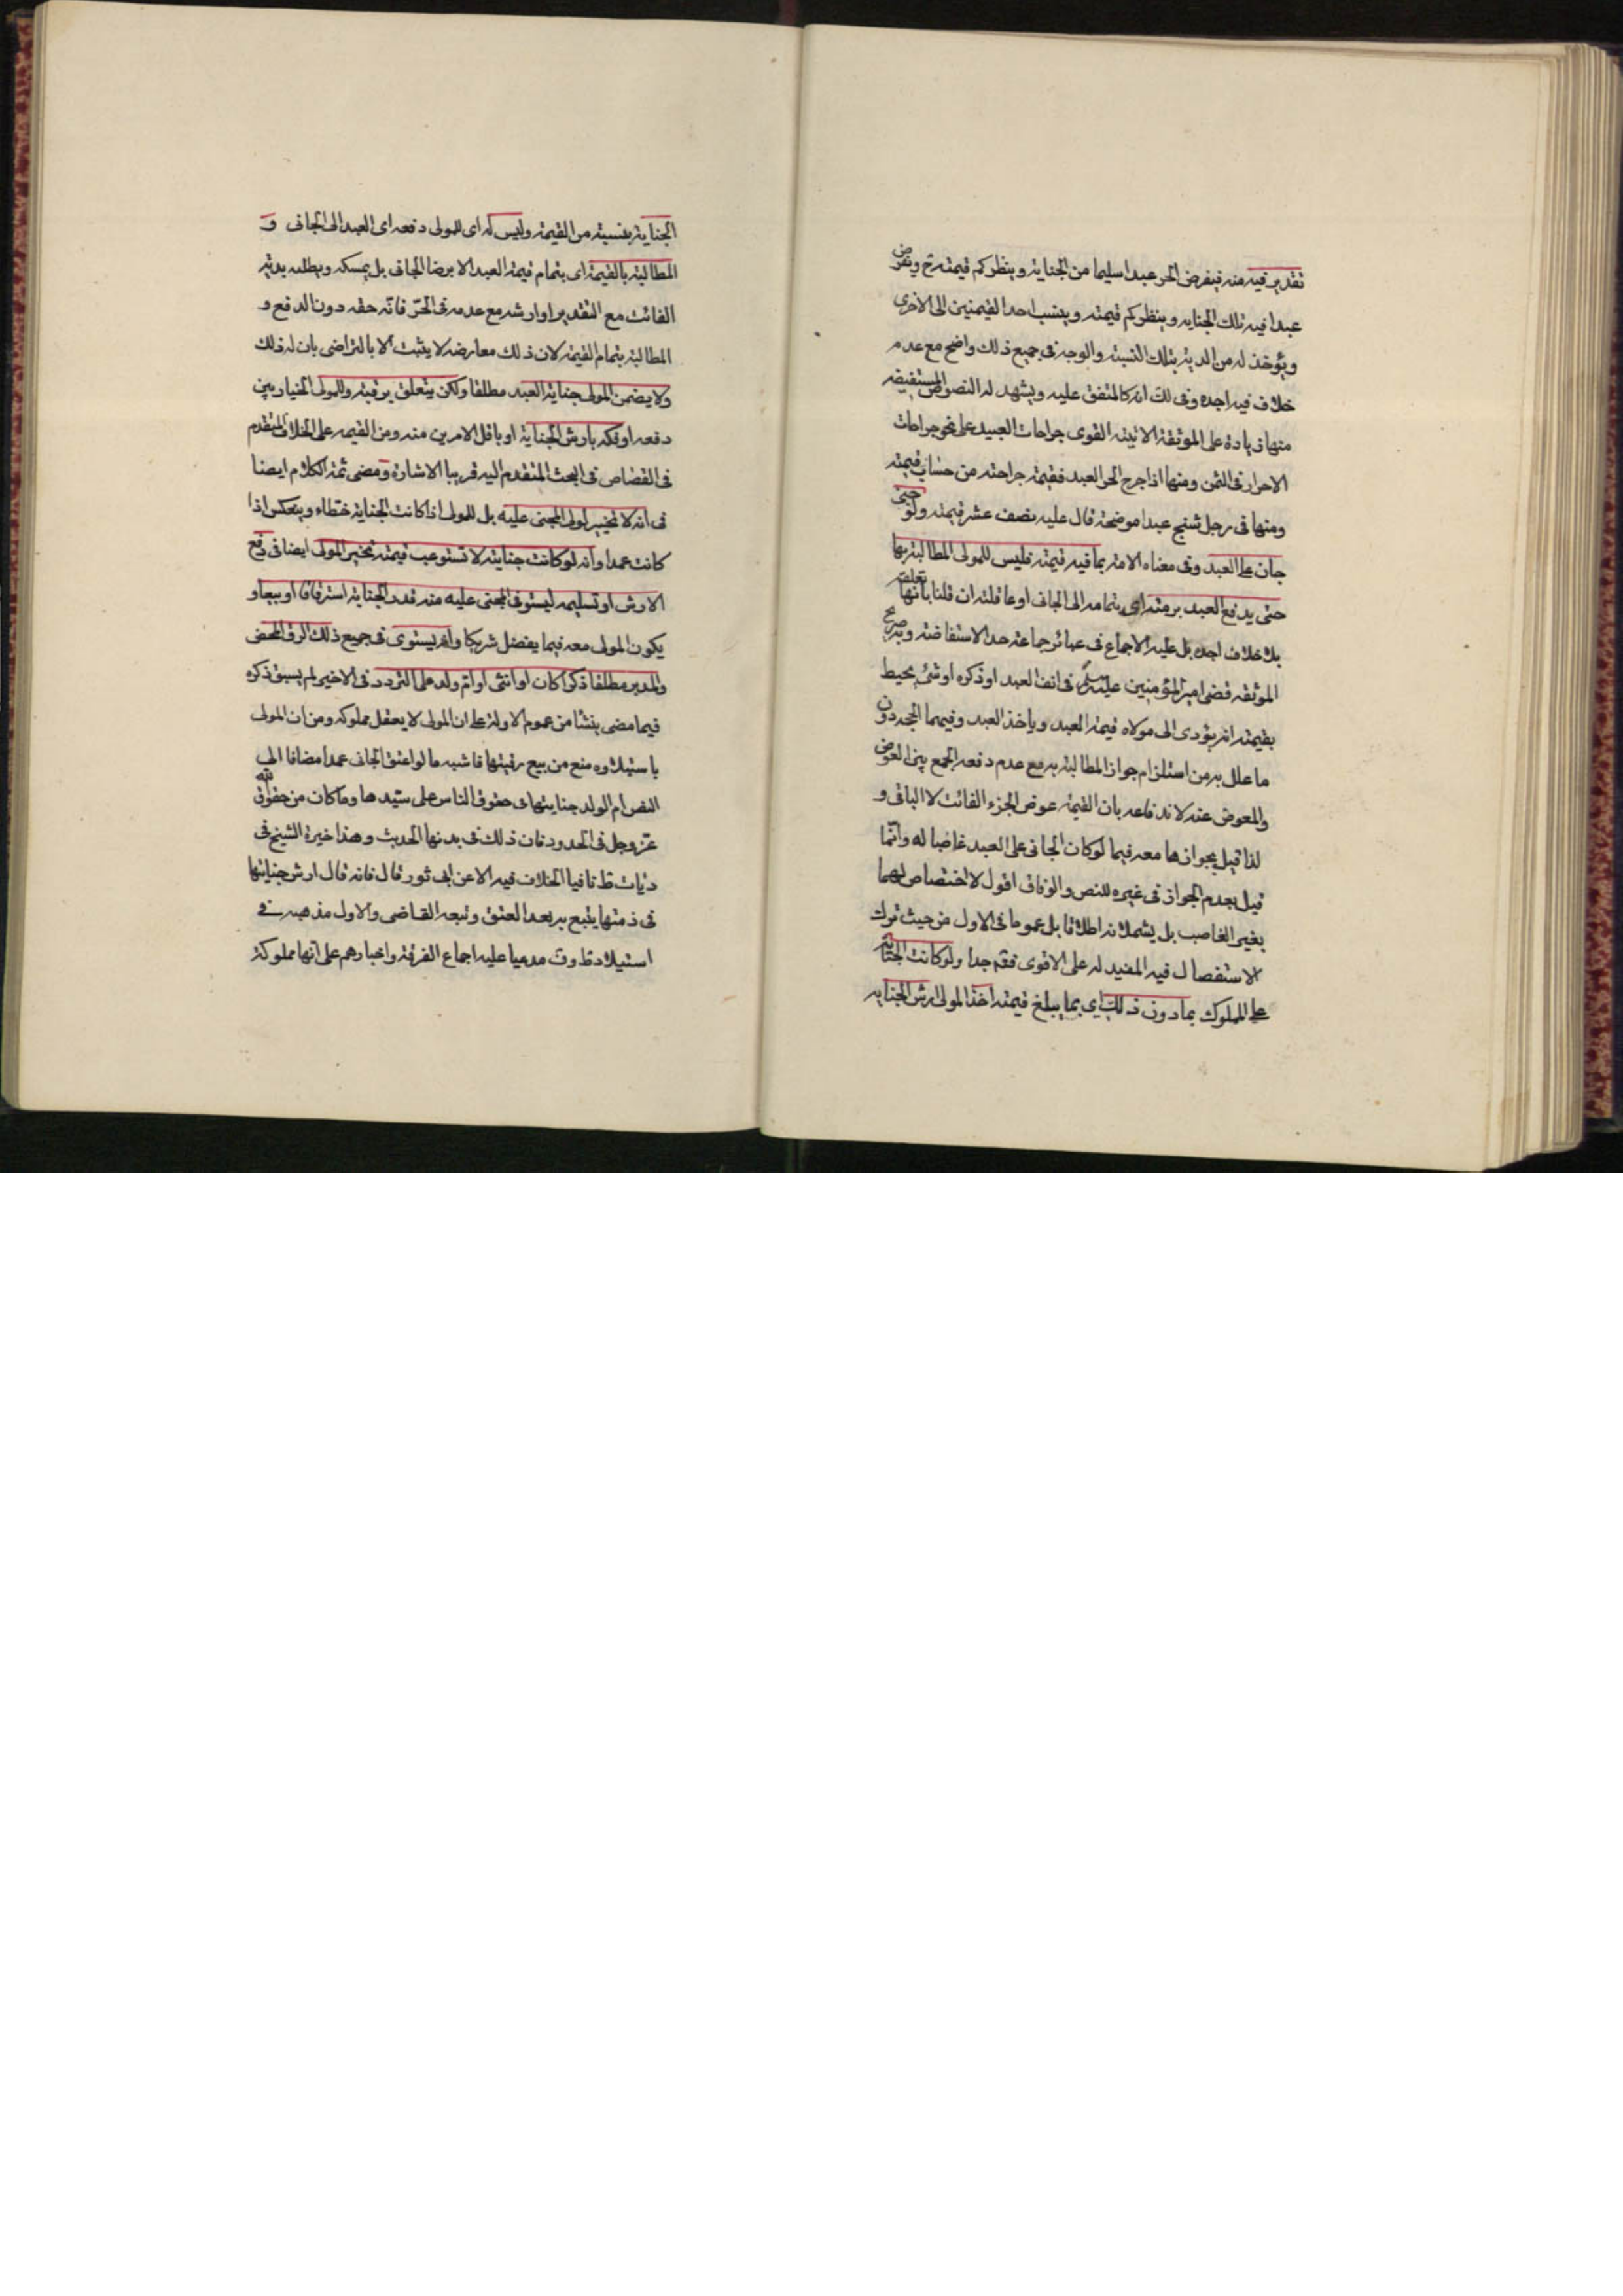 تقدير فيه منه فيفرض الحر عبدا سليما من الجناية وينظر كم قيمته ح ويفرض
عبدا فيه تلك الجنايه وينظر كم قيمته وينسب احد القيمتين الى الاخرى
ويؤخذ له من الدية بتلك النسبة والوجه فى جميع ذلك واضح مع عدم
خلاف فيه اجده وفى لك انه كالمتفق عليه ويشهد له النصوص المستفيضه
منها زيادة على الموثقة الاتيته القوى جراحات العبيد على نحو جراحات
الاحرار فى الثمن ومنها اذا جرح الحر العبد فقيمة جراحته من حساب قيمته
ومنها فى رجل شج عبدا موضحة قال عليه نصف عشر قيمته ولو جنى
جان على العبد وفى معناه الامة بما فيه قيمته فليس للمولى المطالبة بها
حتى يدفع العبد برمته اى بتمامه الى الجانى او عاقلته ان قلنا بانها تعقله
بلا خلاف اجده بل عليه الاجماع فى عبائر جماعة حد الاستفاضة وبه صرح
الموثقه قضى امير المؤمنين عليه السلم فى انف العبد او ذكره او شئ يحيط
بقيمته انه يؤدى الى مولاه قيمة العبد وياخذ العبد وفيهما الحجة دون
ما علل به من استلزام جواز المطالبة به مع عدم دفعه الجمع بين العوض
والمعوض عنه لاندفاعه بان القيمة عوض الجزء الفائت لا الباقى و
لذا قيل بجوازها معه فيما لو كان الجانى على العبد غاصبا له وانما
قيل بعدم الجواز فى غيره للنص والوفاق اقول لا اختصاص لهما
بغير الغاصب بل يشملانه اطلاقا بل عموما فى الاول من حيث ترك
الاستفصال فيه المفيد له على الاقوى فتم جدا ولو كانت الجناية
على المملوك بما دون ذلك اى بما يبلغ قيمته اخذ المولى ارش الجنايه
الجناية بنسبته من القيمة وليس له اى للمولى دفعه اى العبد الى الجانى و
المطالبة بالقيمة اى بتمام قيمة العبد الا برضا الجانى بل يمسكه ويطلبه بدية
الفائت مع التقدير او ارشه مع عدمه فى الحر فانه حقه دون الدفع و
المطالبة بتمام القيمة لان ذلك معارضه لا يثبت الا بالتراضى بان له ذلك
ولا يضمن المولى جناية العبد مطلقا ولكن يتعلق برقبته وللمولى الخيار بين
دفعه او فكه بارش الجناية او باقل الامرين منه ومن القيمه على الخلاف المتقدم
فى القصاص فى البحث المتقدم اليه قريبا الاشارة ومضى ثمة الكلام ايضا
فى انه لا تخيير لولى المجنى عليه بل للمولى اذا كانت الجناية خطاء وينعكس اذا
كانت عمدا وانه لو كانت جنايته لا تستوعب قيمته تخير المولى ايضا فى دفع
الارش او تسليمه ليستوفى المجنى عليه منه قدر الجناية استرقاقا او بيعا و
يكون المولى معه فيما يفضل شريكا وانه يستوى فى جميع ذلك الرق المحض
والمدبر مطلقا ذكرا كان او انثى او ام ولد على التردد فى الاخير لم يسبق ذكره
فيما مضى ينشأ من عموم الادلة على ان المولى لا يعقل مملوكه ومن ان المولى
باستيلاده منع من بيع رقبتها فاشبه ما لو اعتق الجانى عمدا مضافا الى
النص ام الولد جنايتها فى حقوق الناس على سيدها وما كان من حقوق الله
عز وجل فى الحدود فان ذلك فى بدنها الحديث وهذا خيرة الشيخ فى
ديات ط نافيا الخلاف فيه الا عن ابى ثور قال فانه قال ارش جنايتها
فى ذمتها يتبع به بعد العتق وتبعه القاضى والاول مذهبه فى
استيلاد ط و ف مدعيا عليه اجماع الفرقة واخبارهم على انها مملوكة